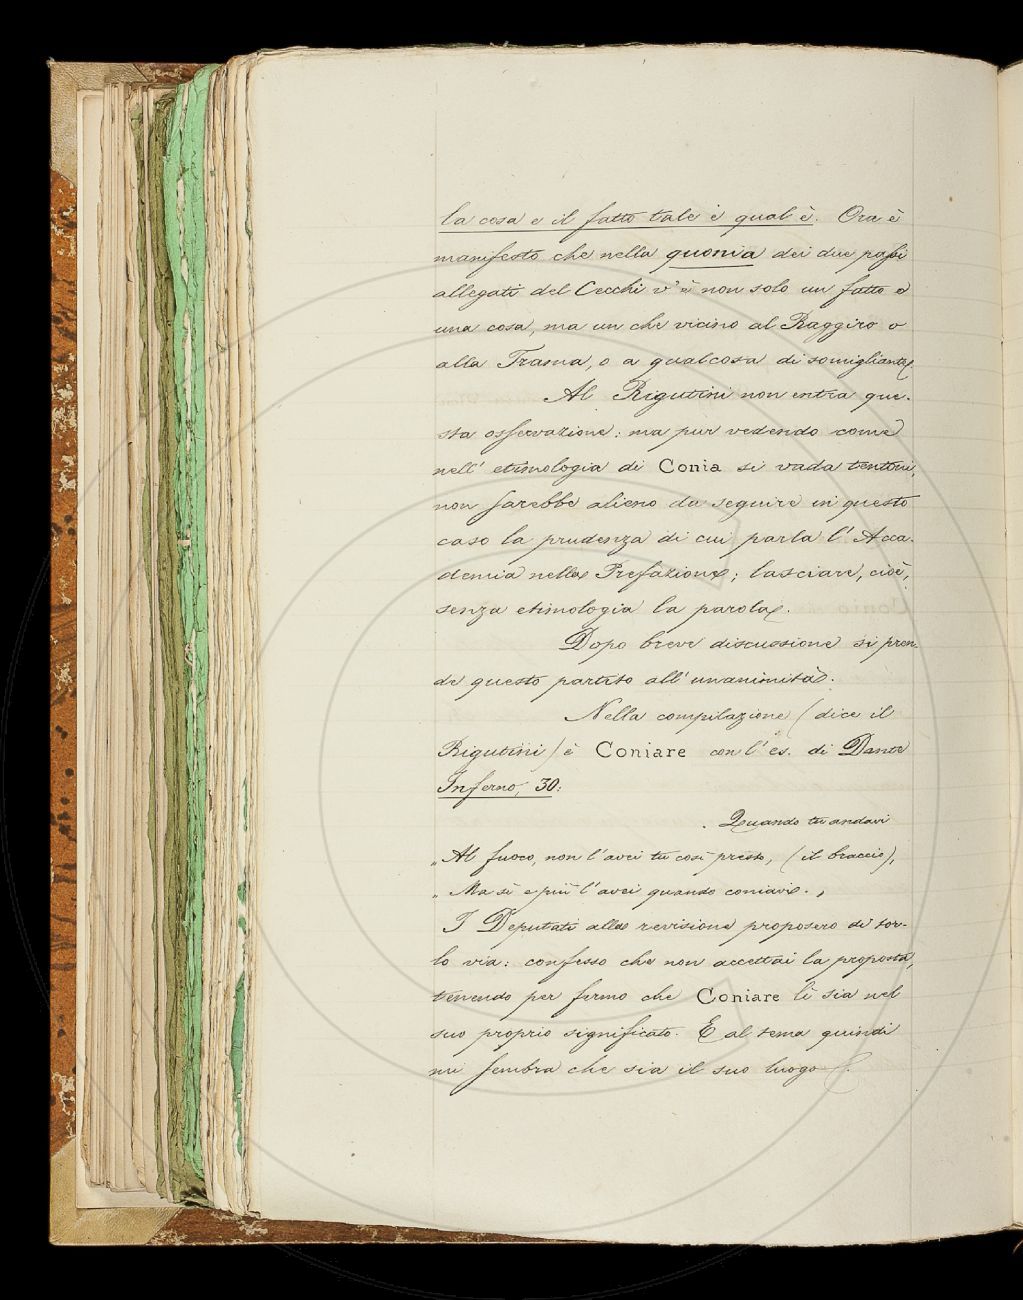 la cosa e il fatto tale è qual è. Ora è
manifesto che nella quonia dei due passi
allegati del Cecchi v'è non solo un fatto e
una cosa, ma un che vicino al Raggiro o
alla Trama, o a qualcosa di somigliante.
Al Rigutini non entra que-
sta osservazione: ma pur vedendo come
nell' etimologia di Conia si vada tentoni,
non sarebbe alieno da seguire in questo
caso la prudenza di cui parla l' Acca-
demia nella Prefazione; lasciare, cioè,
senza etimologia la parola.
Dopo breve discussione si pren-
de questo partito all' unanimità.
Nella compilazione (dice il
Rigutini) è Coniare con l' es. di Dante
Inferno, 30:
Quando tu andavi
„ Al fuoco, non l'avei tu così presto, (il braccio),
„ Ma sì e più l'avei quando coniavi. „
I Deputati alla revisione proposero di tor-
lo via: confesso che non accettai la proposta,
tenendo per fermo che Coniare lì sia nel
suo proprio significato. E al tema quindi
mi sembra che sia il suo luogo.